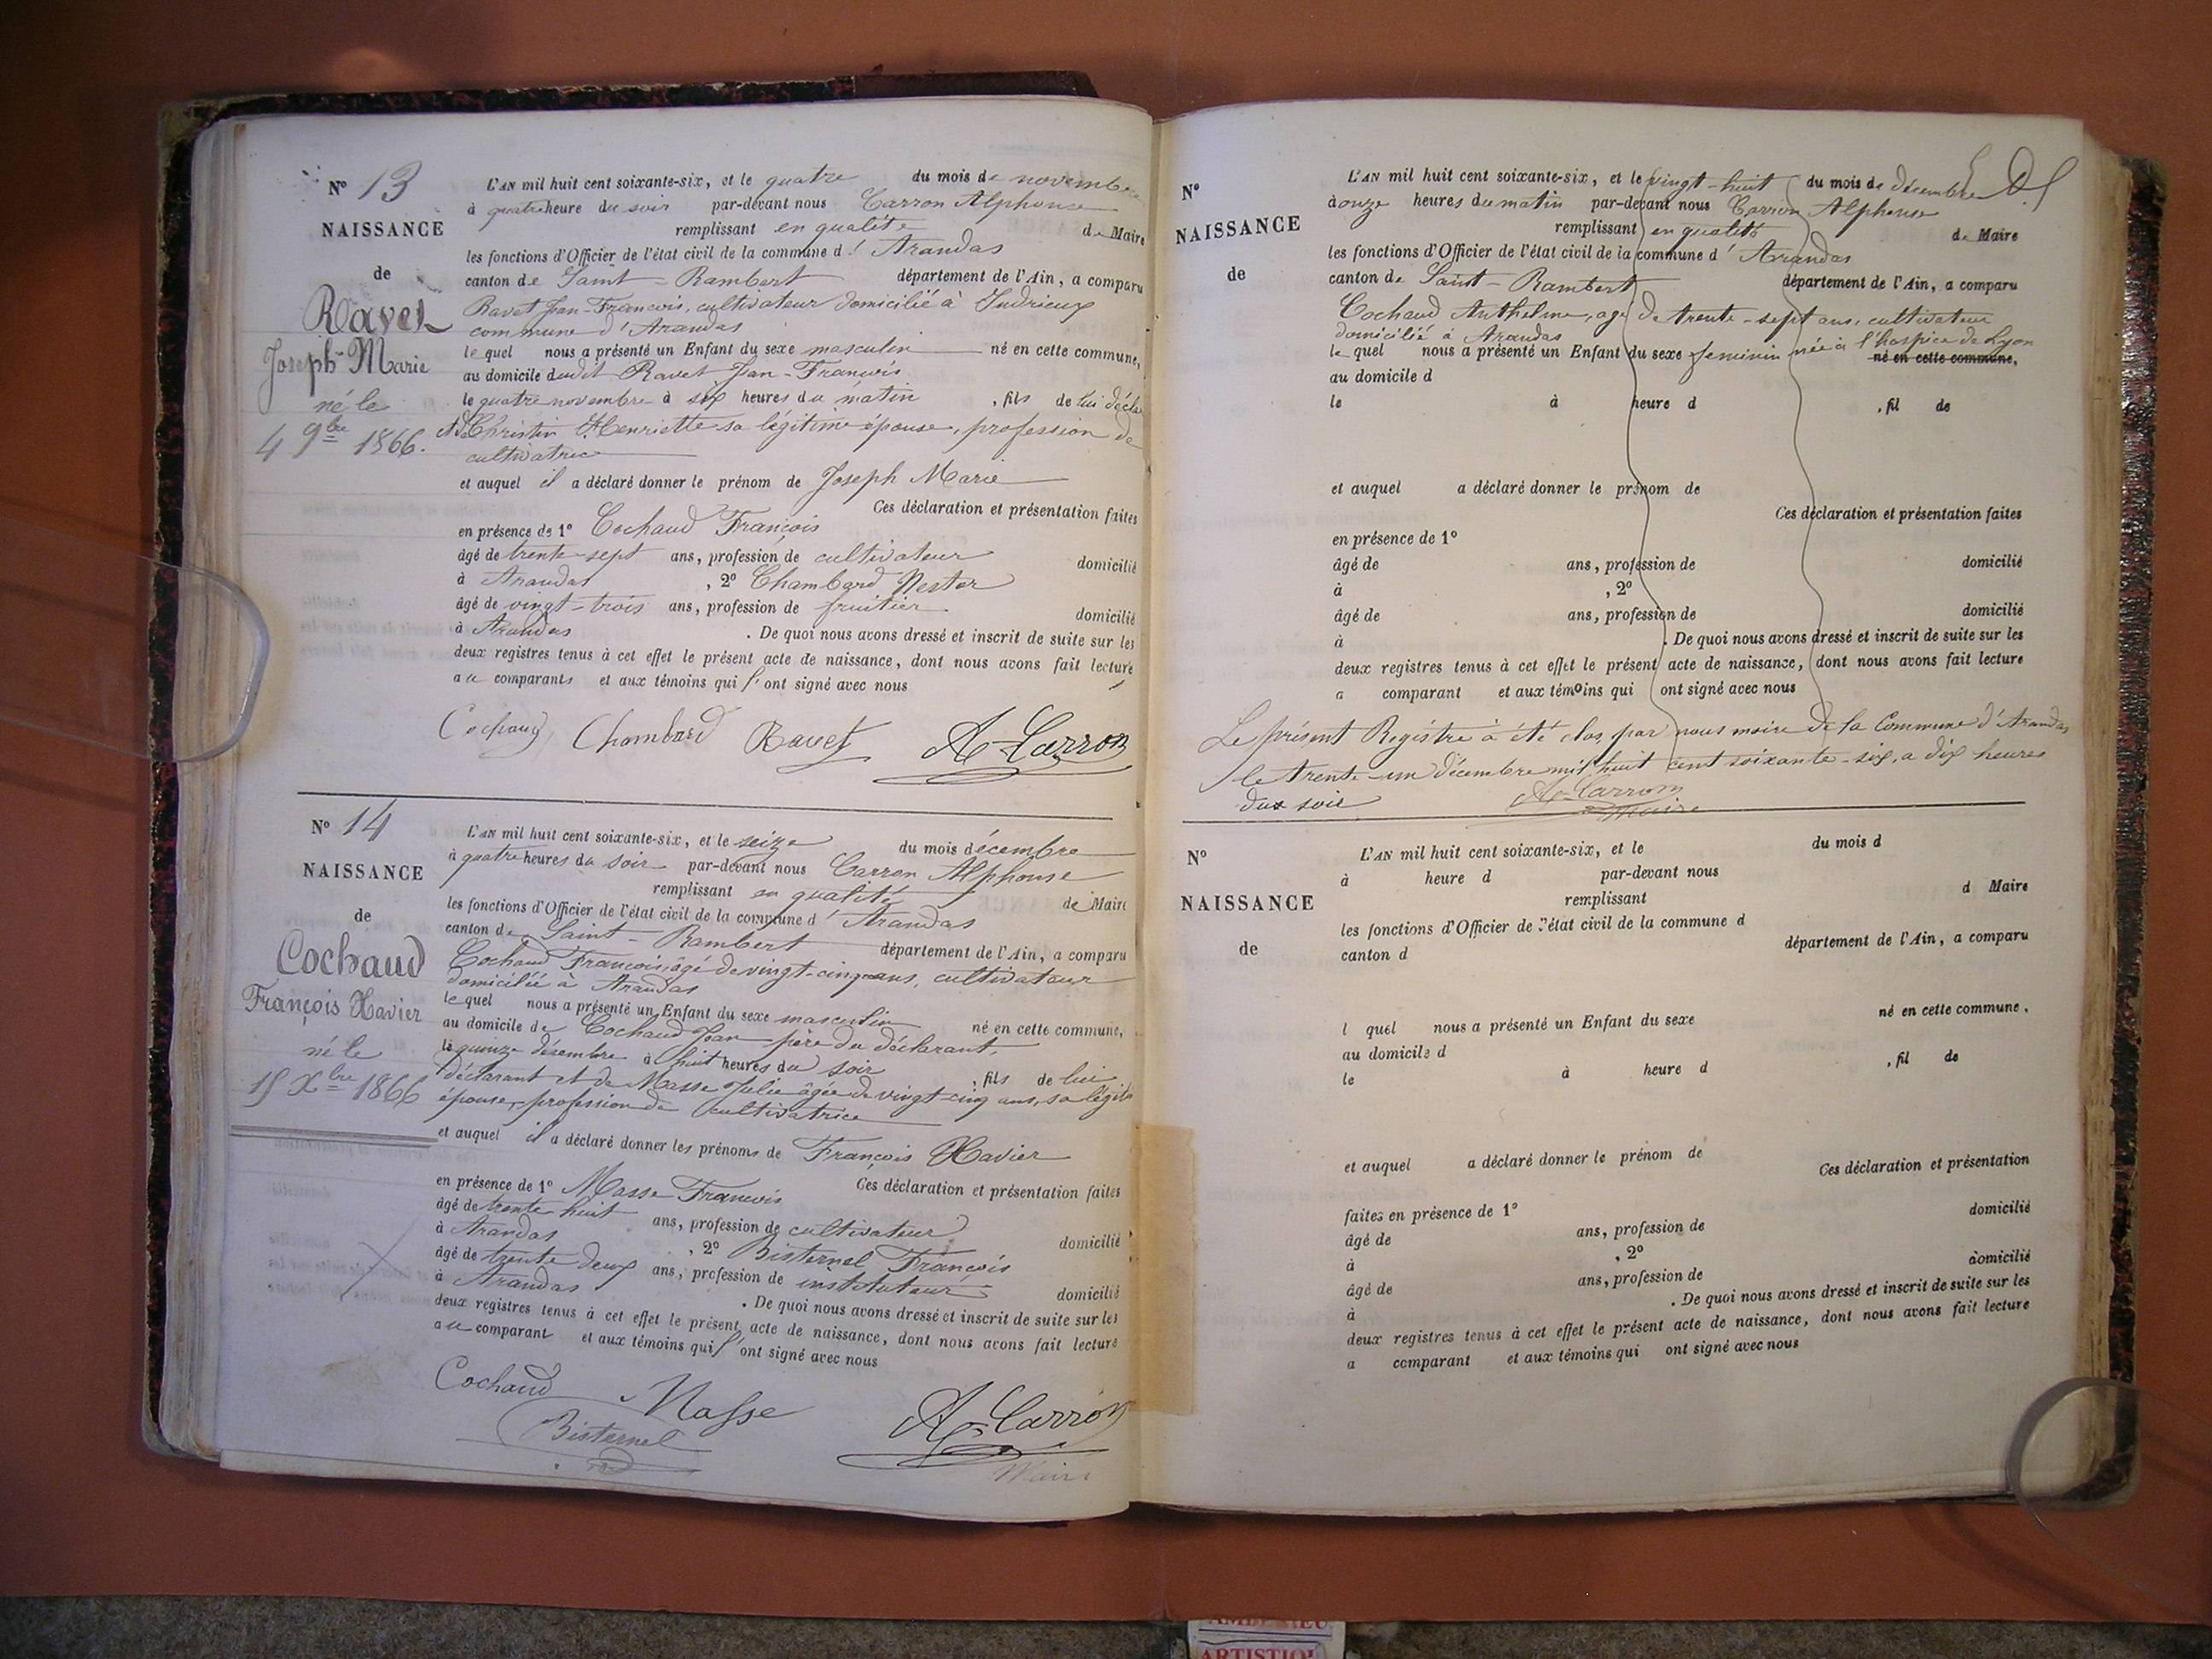 N° 13
NAISSANCE
de
Ravet
Joseph-Marie
né le
4 9bre 1866.
L'AN mil huit cent soixante-six, et le quatre du mois de novembre
à quatre heure du soir par-devant nous Carron Alphonse
remplissant en qualité de Maire
les fonctions d'Officier de l'état civil de la commune d' Arandas
canton de Saint-Rambert département de l'Ain, a comparu
Ravet Jean-François, cultivateur domicilié à Indrieux
commune d'Arandas
le quel nous a présenté un Enfant du sexe masculin né en cette commune,
au domicile dudit Ravet Jean-François
le quatre novembre à six heures du matin , fils de lui décla
et de Christin Henriette sa légitime épouse, profession de
cultivatrice
et auquel il a déclaré donner le prénom de Joseph Marie
Ces déclaration et présentation faites
en présence de 1° Cochaud François
âgé de trente-sept ans, profession de cultivateur domicilié
à Arandas , 2° Chambard Nestor
âgé de vingt-trois ans, profession de fruitier domicilié
à Arandas . De quoi nous avons dressé et inscrit de suite sur les
deux registres tenus à cet effet le présent acte de naissance, dont nous avons fait lecture
au comparants et aux témoins qui l' ont signé avec nous
Cochaud Chambard Ravet A Carron
N° 14
NAISSANCE
de
Cochaud
François Xavier
né le
15 Xbre 1866
L'AN mil huit cent soixante-six, et le seize du mois décembre
à quatre heures du soir par-devant nous Carron Alphonse
remplissant en qualité de Maire
les fonctions d'Officier de l'état civil de la commune d' Arandas
canton de Saint-Rambert département de l'Ain, a comparu
Cochaud François âgé de vingt-cinq ans, cultivateur
domiciliée à Arandas
le quel nous a présenté un Enfant du sexe masculin né en cette commune,
au domicile de Cochaud Jean père du déclarant,
le quinze désembre à huit heures du soir , fils de lui
déclarant et de Masse Julie âgée de vingt-cinq ans, sa légit
épouse, profession de cultivatrice
et auquel il a déclaré donner les prénoms de François Xavier
Ces déclaration et présentation faites
en présence de 1° Masse François
âgé de trente huit ans, profession de cultivateur domicilié
à Arandas , 2° Bisternel François
âgé de trente deux ans, profession de instituteur domicilié
à Arandas . De quoi nous avons dressé et inscrit de suite sur les
deux registres tenus à cet effet le présent acte de naissance, dont nous avons fait lecture
au comparant et aux témoins qui l' ont signé avec nous
Cochaud Masse A Carron
Bisternel Maire
N°
NAISSANCE
de
L'AN mil huit cent soixante-six, et le vingt-huit du mois de décembre
à onze heures du matin par-devant nous Carron Alphonse
remplissant en qualité de Maire
les fonctions d'Officier de l'état civil de la commune d' Arandas
canton de Saint-Rambert département de l'Ain, a comparu
Cochaud Anthelme, agé de trente-sept ans, cultivateur
domicilié à Arandas
le quel nous a présenté un Enfant du sexe feminin née à l'hospice de Lyon
né en cette commune,
au domicile d
le à heure d , fil de
et auquel a déclaré donner le prénom de
Ces déclaration et présentation faites
en présence de 1°
âgé de ans, profession de domicilié
à , 2°
âgé de ans, profession de domicilié
à . De quoi nous avons dressé et inscrit de suite sur les
deux registres tenus à cet effet le présent acte de naissance, dont nous avons fait lecture
a comparant et aux témoins qui ont signé avec nous
Le présent Registre à été clos par nous maire de la Commune d'Arandas
le trente-un décembre mil huit cent soixante-six, a dix heures
dus soir A Carron
Maire
N°
NAISSANCE
de
L'AN mil huit cent soixante-six, et le du mois d
à heure d par-devant nous
remplissant d Maire
les fonctions d'Officier de l'état civil de la commune d
canton d département de l'Ain, a comparu
l quel nous a présenté un Enfant du sexe né en cette commune,
au domicile d
le à heure d , fil de
et auquel a déclaré donner le prénom de
Ces déclaration et présentation
faites en présence de 1°
âgé de ans, profession de domicilié
à , 2°
âgé de ans, profession de domicilié
à . De quoi nous avons dressé et inscrit de suite sur les
deux registres tenus à cet effet le présent acte de naissance, dont nous avons fait lecture
a comparant et aux témoins qui ont signé avec nous